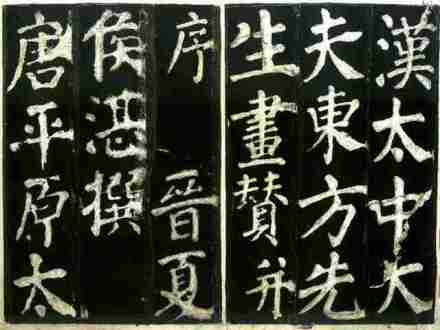 漢太中大
夫東方先
生畫贊并
序 晉夏
侯湛撰
唐平原太